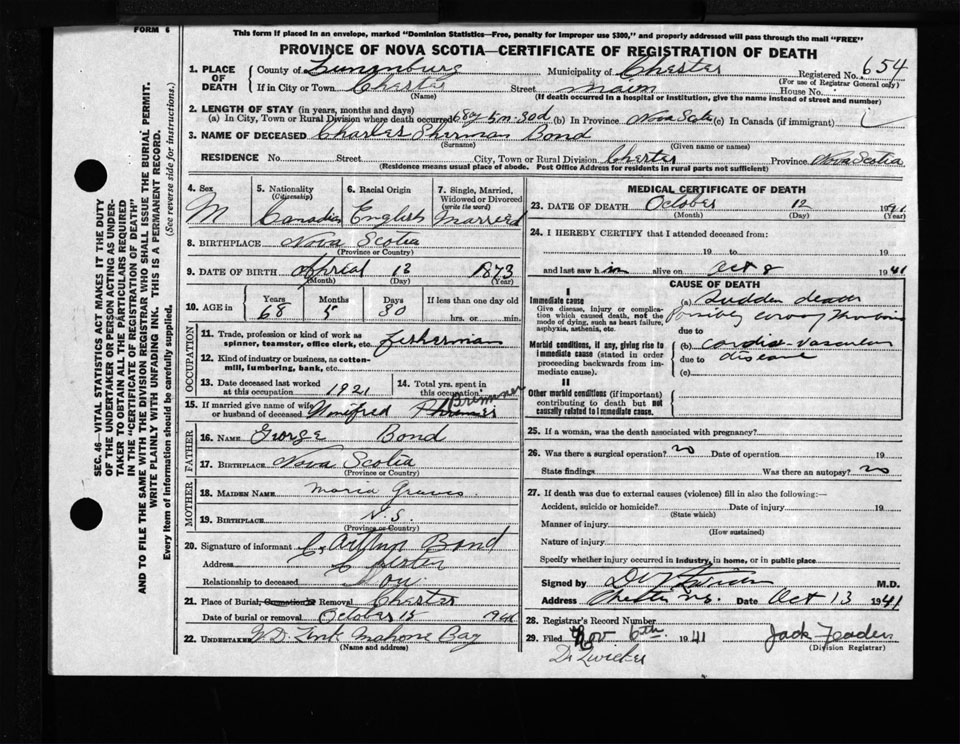 FORM 6
This form if placed in an envelope, marked "Dominion Statistics—Free, penalty for improper use $300," and properly addressed will pass through the mail "FREE"
PROVINCE OF NOVA SCOTIA—CERTIFICATE OF REGISTRATION OF DEATH
1. PLACE OF DEATH County of Lunenburg Municipality of Chester Registered No. 654
(For use of Registrar General only)
If in City or Town Chester Street Main House No.
(Name) (If death occurred in a hospital or institution, give the name instead of street and number)
2. LENGTH OF STAY (in years, months and days)
(a) In City, Town or Rural Division where death occurred 68y 5m 30d (b) In Province Nova Scotia (c) In Canada (if immigrant)
3. NAME OF DECEASED Charles Sherman Bond
(Surname) (Given name or names)
RESIDENCE No. Street City, Town or Rural Division Chester Province Nova Scotia
(Residence means usual place of abode. Post Office Address for residents in rural parts not sufficient)
4. Sex M
5. Nationality (Citizenship) Canadian
6. Racial Origin English
7. Single, Married, Widowed or Divorced (write the word) Married
8. BIRTHPLACE Nova Scotia
(Province or Country)
9. DATE OF BIRTH Aprial 12 1873
(Month) (Day) (Year)
10. AGE in Years 68 Months 5 Days 30 If less than one day old
hrs. or min.
OCCUPATION
11. Trade, profession or kind of work as spinner, teamster, office clerk, etc. fisherman
12. Kind of industry or business, as cotton-mill, lumbering, bank, etc.
13. Date deceased last worked at this occupation 1921
14. Total yrs. spent in this occupation
15. If married give name of wife or husband of deceased Winifred Bremner
FATHER
16. NAME George Bond
17. BIRTHPLACE Nova Scotia
MOTHER
18. MAIDEN NAME Maria Graves
19. BIRTHPLACE N.S.
(Province or Country)
20. Signature of informant C. Arthur Bond
Address Chester
Relationship to deceased Son.
21. Place of Burial, Cremation or Removal Chester
Date of burial or removal October 15 1941
22. UNDERTAKER W D. Zink Mahone Bay
(Name and address)
MEDICAL CERTIFICATE OF DEATH
23. DATE OF DEATH October 12 1941
(Month) (Day) (Year)
24. I HEREBY CERTIFY that I attended deceased from:
19 to 19
and last saw him alive on Oct 8 1941
CAUSE OF DEATH
I
Immediate cause
Give disease, injury or complication which caused death, not the mode of dying, such as heart failure, asphyxia, asthenia, etc.
(a) Sudden death
Possibly coronary Thrombosis
due to
Morbid conditions, if any, giving rise to immediate cause (stated in order proceeding backwards from immediate cause).
(b) Cardio-vascular
due to disease
(c)
II
Other morbid conditions (if important) contributing to death but not causally related to immediate cause.
25. If a woman, was the death associated with pregnancy?
26. Was there a surgical operation? no Date of operation 19
State findings Was there an autopsy? no
27. If death was due to external causes (violence) fill in also the following:—
Accident, suicide or homicide? Date of injury 19
(State which)
Manner of injury
(How sustained)
Nature of injury
Specify whether injury occurred in industry, in home, or in public place
Signed by M.D.
Address Chester N.S. Date Oct 13 1941
28. Registrar's Record Number
29. Filed Nov 6th 1941 Jack Feader
(Division Registrar)
Dr Zwicker
SEC. 46—VITAL STATISTICS ACT MAKES IT THE DUTY
OF THE UNDERTAKER OR PERSON ACTING AS UNDER-
TAKER TO OBTAIN ALL THE PARTICULARS REQUIRED
IN THE "CERTIFICATE OF REGISTRATION OF DEATH"
AND TO FILE THE SAME WITH THE DIVISION REGISTRAR WHO SHALL ISSUE THE BURIAL PERMIT.
WRITE PLAINLY WITH UNFADING INK. THIS IS A PERMANENT RECORD.
Every item of information should be carefully supplied. (See reverse side for instructions.)